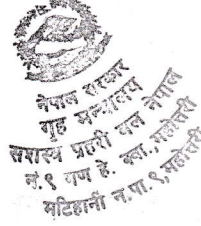 नेपाल सरकार
गृह मन्त्रालय
सशस्त्र प्रहरी बल नेपाल
नं. ९ गण हे. क्वा., महोत्तरी
मटिहानी न.पा. ९, महोत्तरी